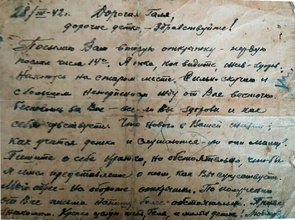 28/III-42г. Дорогая Галя,
дорогие детки - здравствуйте!
Посылаю Вам вторую открытку - первую
послал числа 14го. Я пока как видите жив-здоров
Нахожусь на старом месте. Сильно скучаю и
с большим нетерпением жду от Вас весточки.
все ли Вы здоровы и как
себя чувствуете. Что нового в Вашей жизни,
как учатся детки и слушаются ли они маму?
Пишите о себе кратко, но обстоятельно чтобы
я имел представление о том, как Вы
Мой адрес - на обороте открытки. По получении
от Вас письма напишу более обстоятельно.
Крепко целую